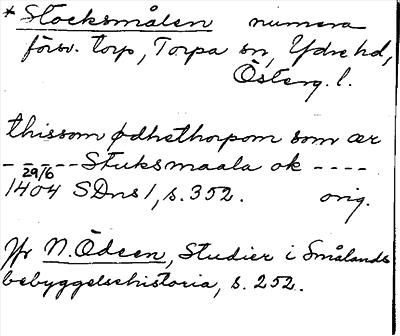 * Stocksmålen numera
försv. torp, Torpa sn, Ydre hd,
Österg. l.
thissom ødhethorpom som ær
- - - - - Stuksmaala ok - - - -
29/6
1404 SDns 1, s. 352. orig.
Jfr N. Ödeen, Studier i Smålands
bebyggelsehistoria, s. 252.